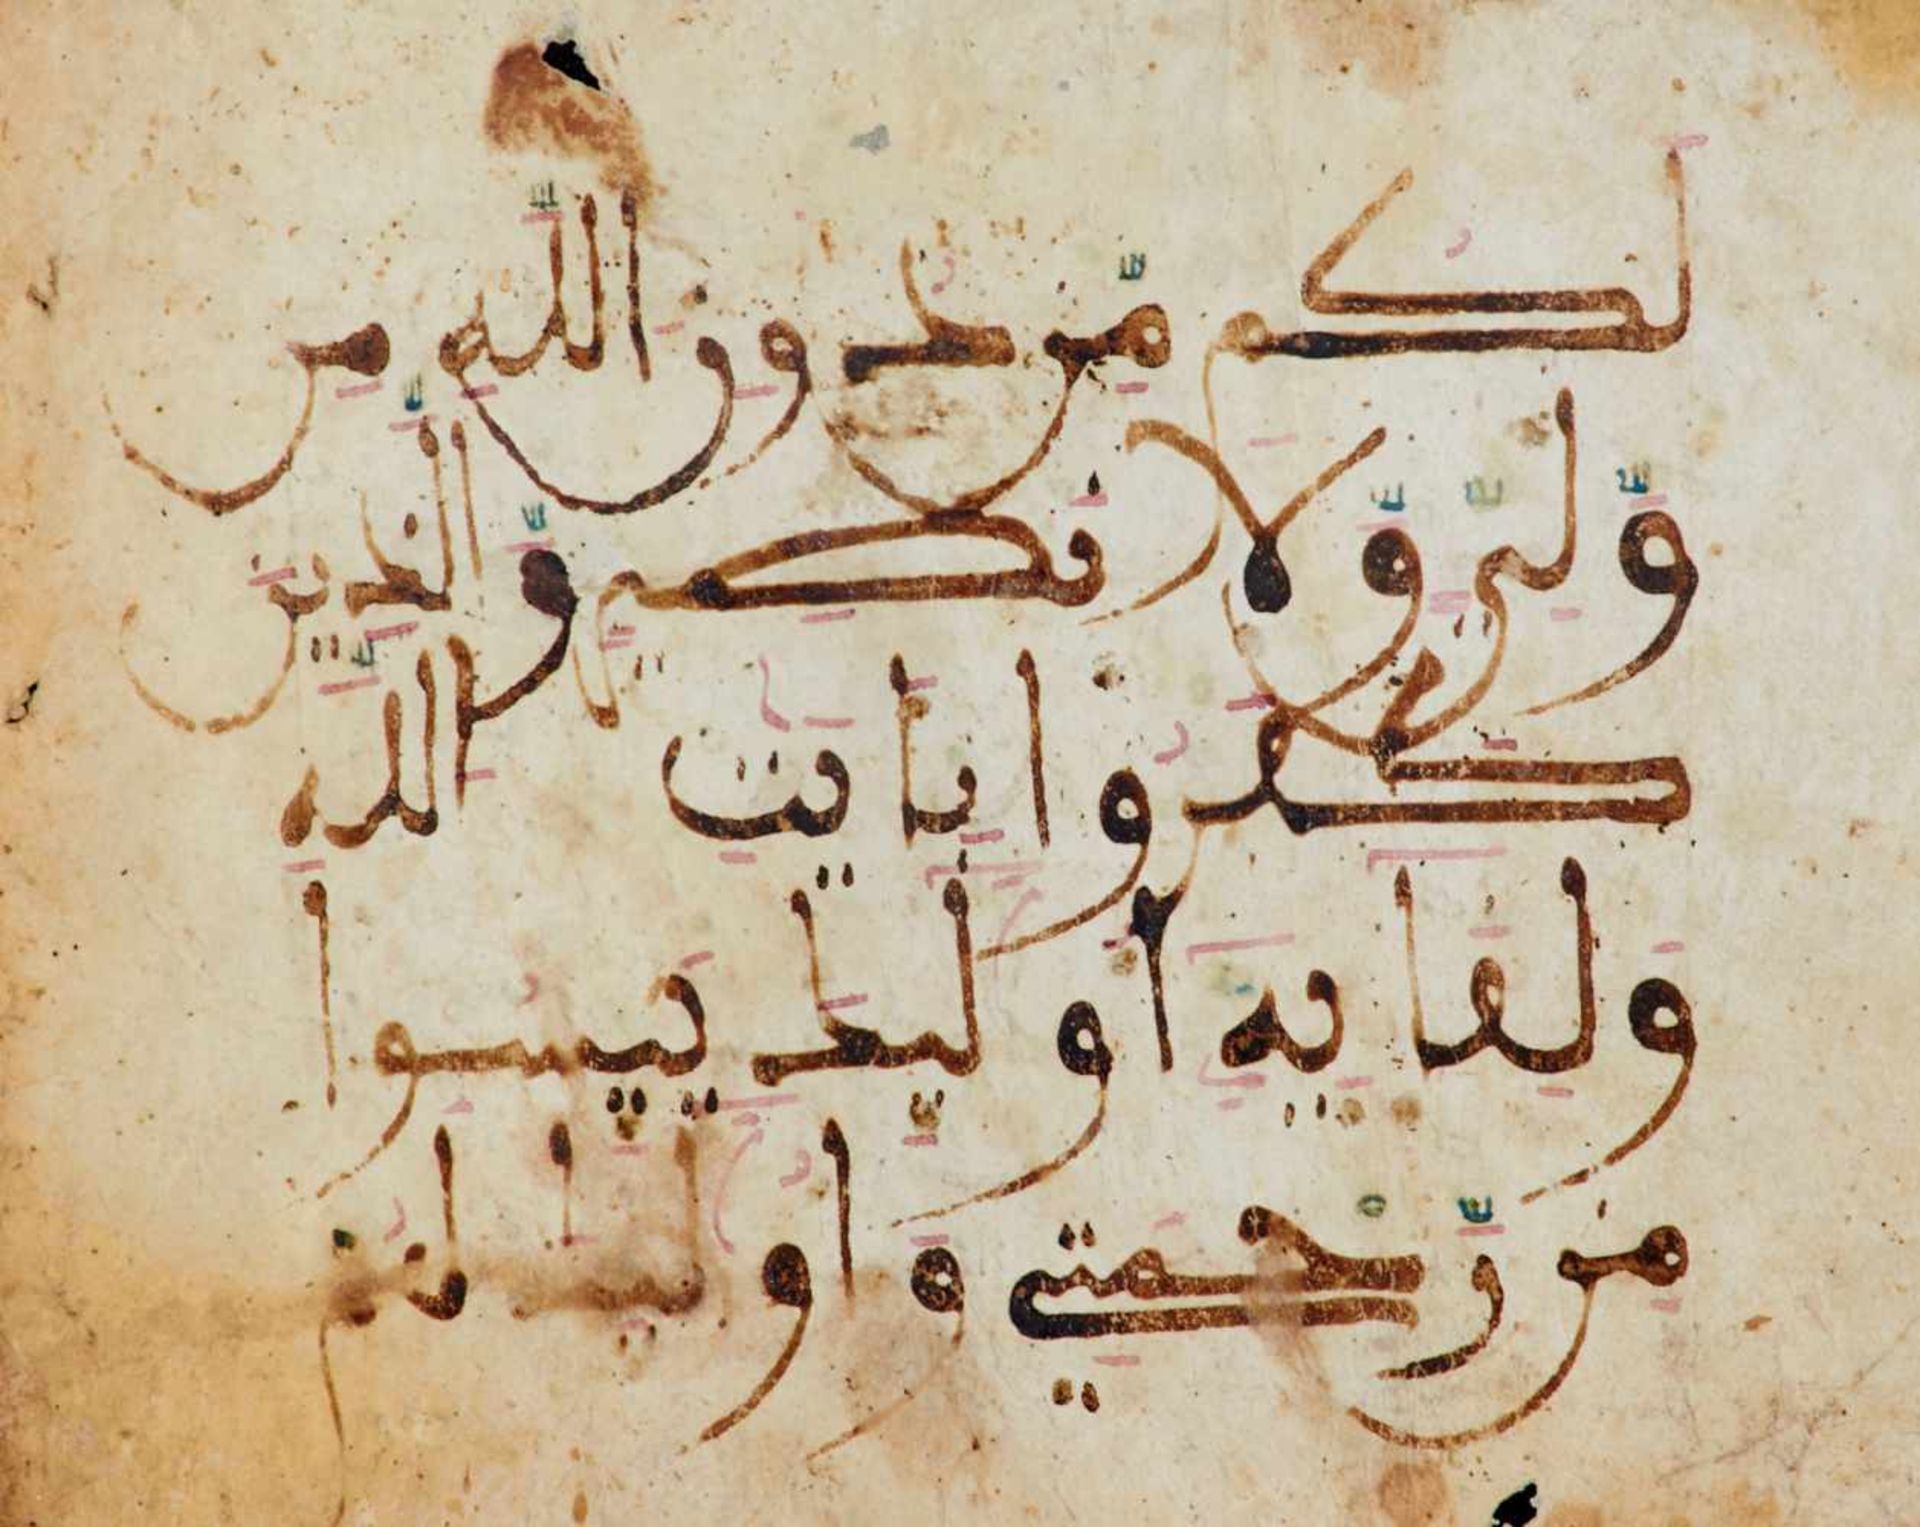 لكم من دون الله من
ولي ولا نصير والذين
كفروا بايت الله
ولقايه اوليك ييسوا
من رحمتي واوليك لهم